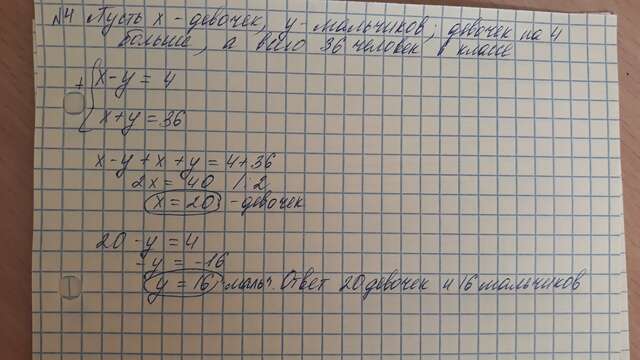 №4 Пусть x - девочек, y - мальчиков; девочек на 4
больше, а всего 36 человек в классе
x-y = 4
+
x+y = 36
x-y+x+y = 4+36
2x = 40 /:2
x = 20 - девочек
20 - y = 4
-y = -16
y = 16, мальч. Ответ 20 девочек и 16 мальчиков